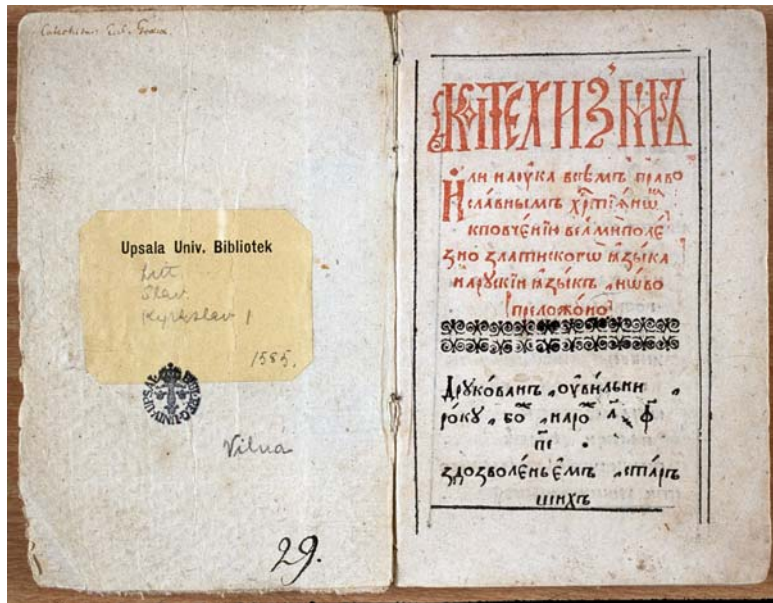 Catechism
Upsala Univ. Bibliotek
Litt
Slav.
Kyrkslav 1
1585.
Vilna
29.
КАТЕХИЗМЪ
Или наꙋка всѣмъ право
славнымъ хр҃тїѧнѡ
къповчєнїю вєлми полє
зно златинскогѡ ꙗзыка
нарꙋскїи ꙗзыкъ нѡво
прєложоно
Дрꙋкованъ ꙋвилни
рокꙋ бо наро ҂а ф
п҃є
здозволєньємъ стар
шихъ